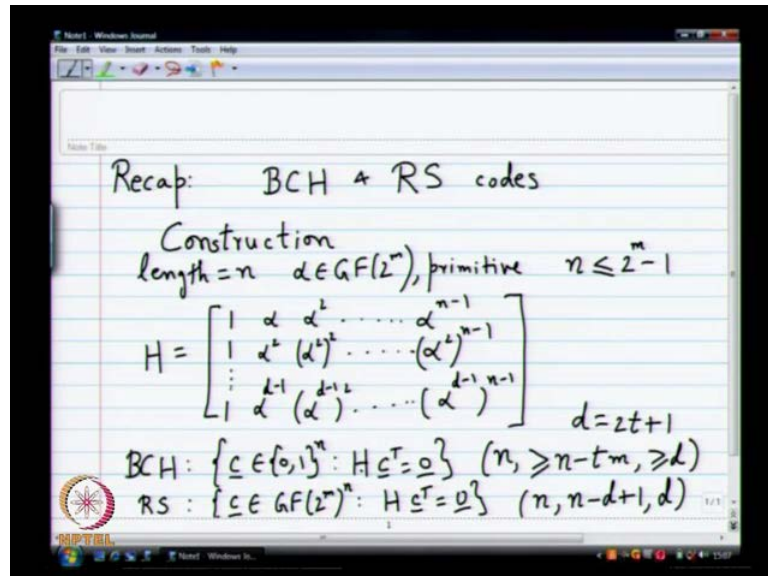 Note1 - Windows Journal
File Edit View Insert Actions Tools Help
Note Title
Recap: BCH & RS codes
Construction
length = n α ∈ GF(2^m), primitive n ≤ 2^m - 1
H = [ 1 α α^2 ..... α^{n-1}
1 α^2 (α^2)^2 ..... (α^2)^{n-1}
⋮
1 α^{d-1} (α^{d-1})^2 ..... (α^{d-1})^{n-1} ]
d = 2t+1
BCH : { c ∈ {0,1}^n : H c^T = 0 } (n, ≥ n-tm, ≥ d)
RS : { c ∈ GF(2^m)^n : H c^T = 0 } (n, n-d+1, d)
1/1
1
NPTEL
Note1 - Windows Jo...
15:07